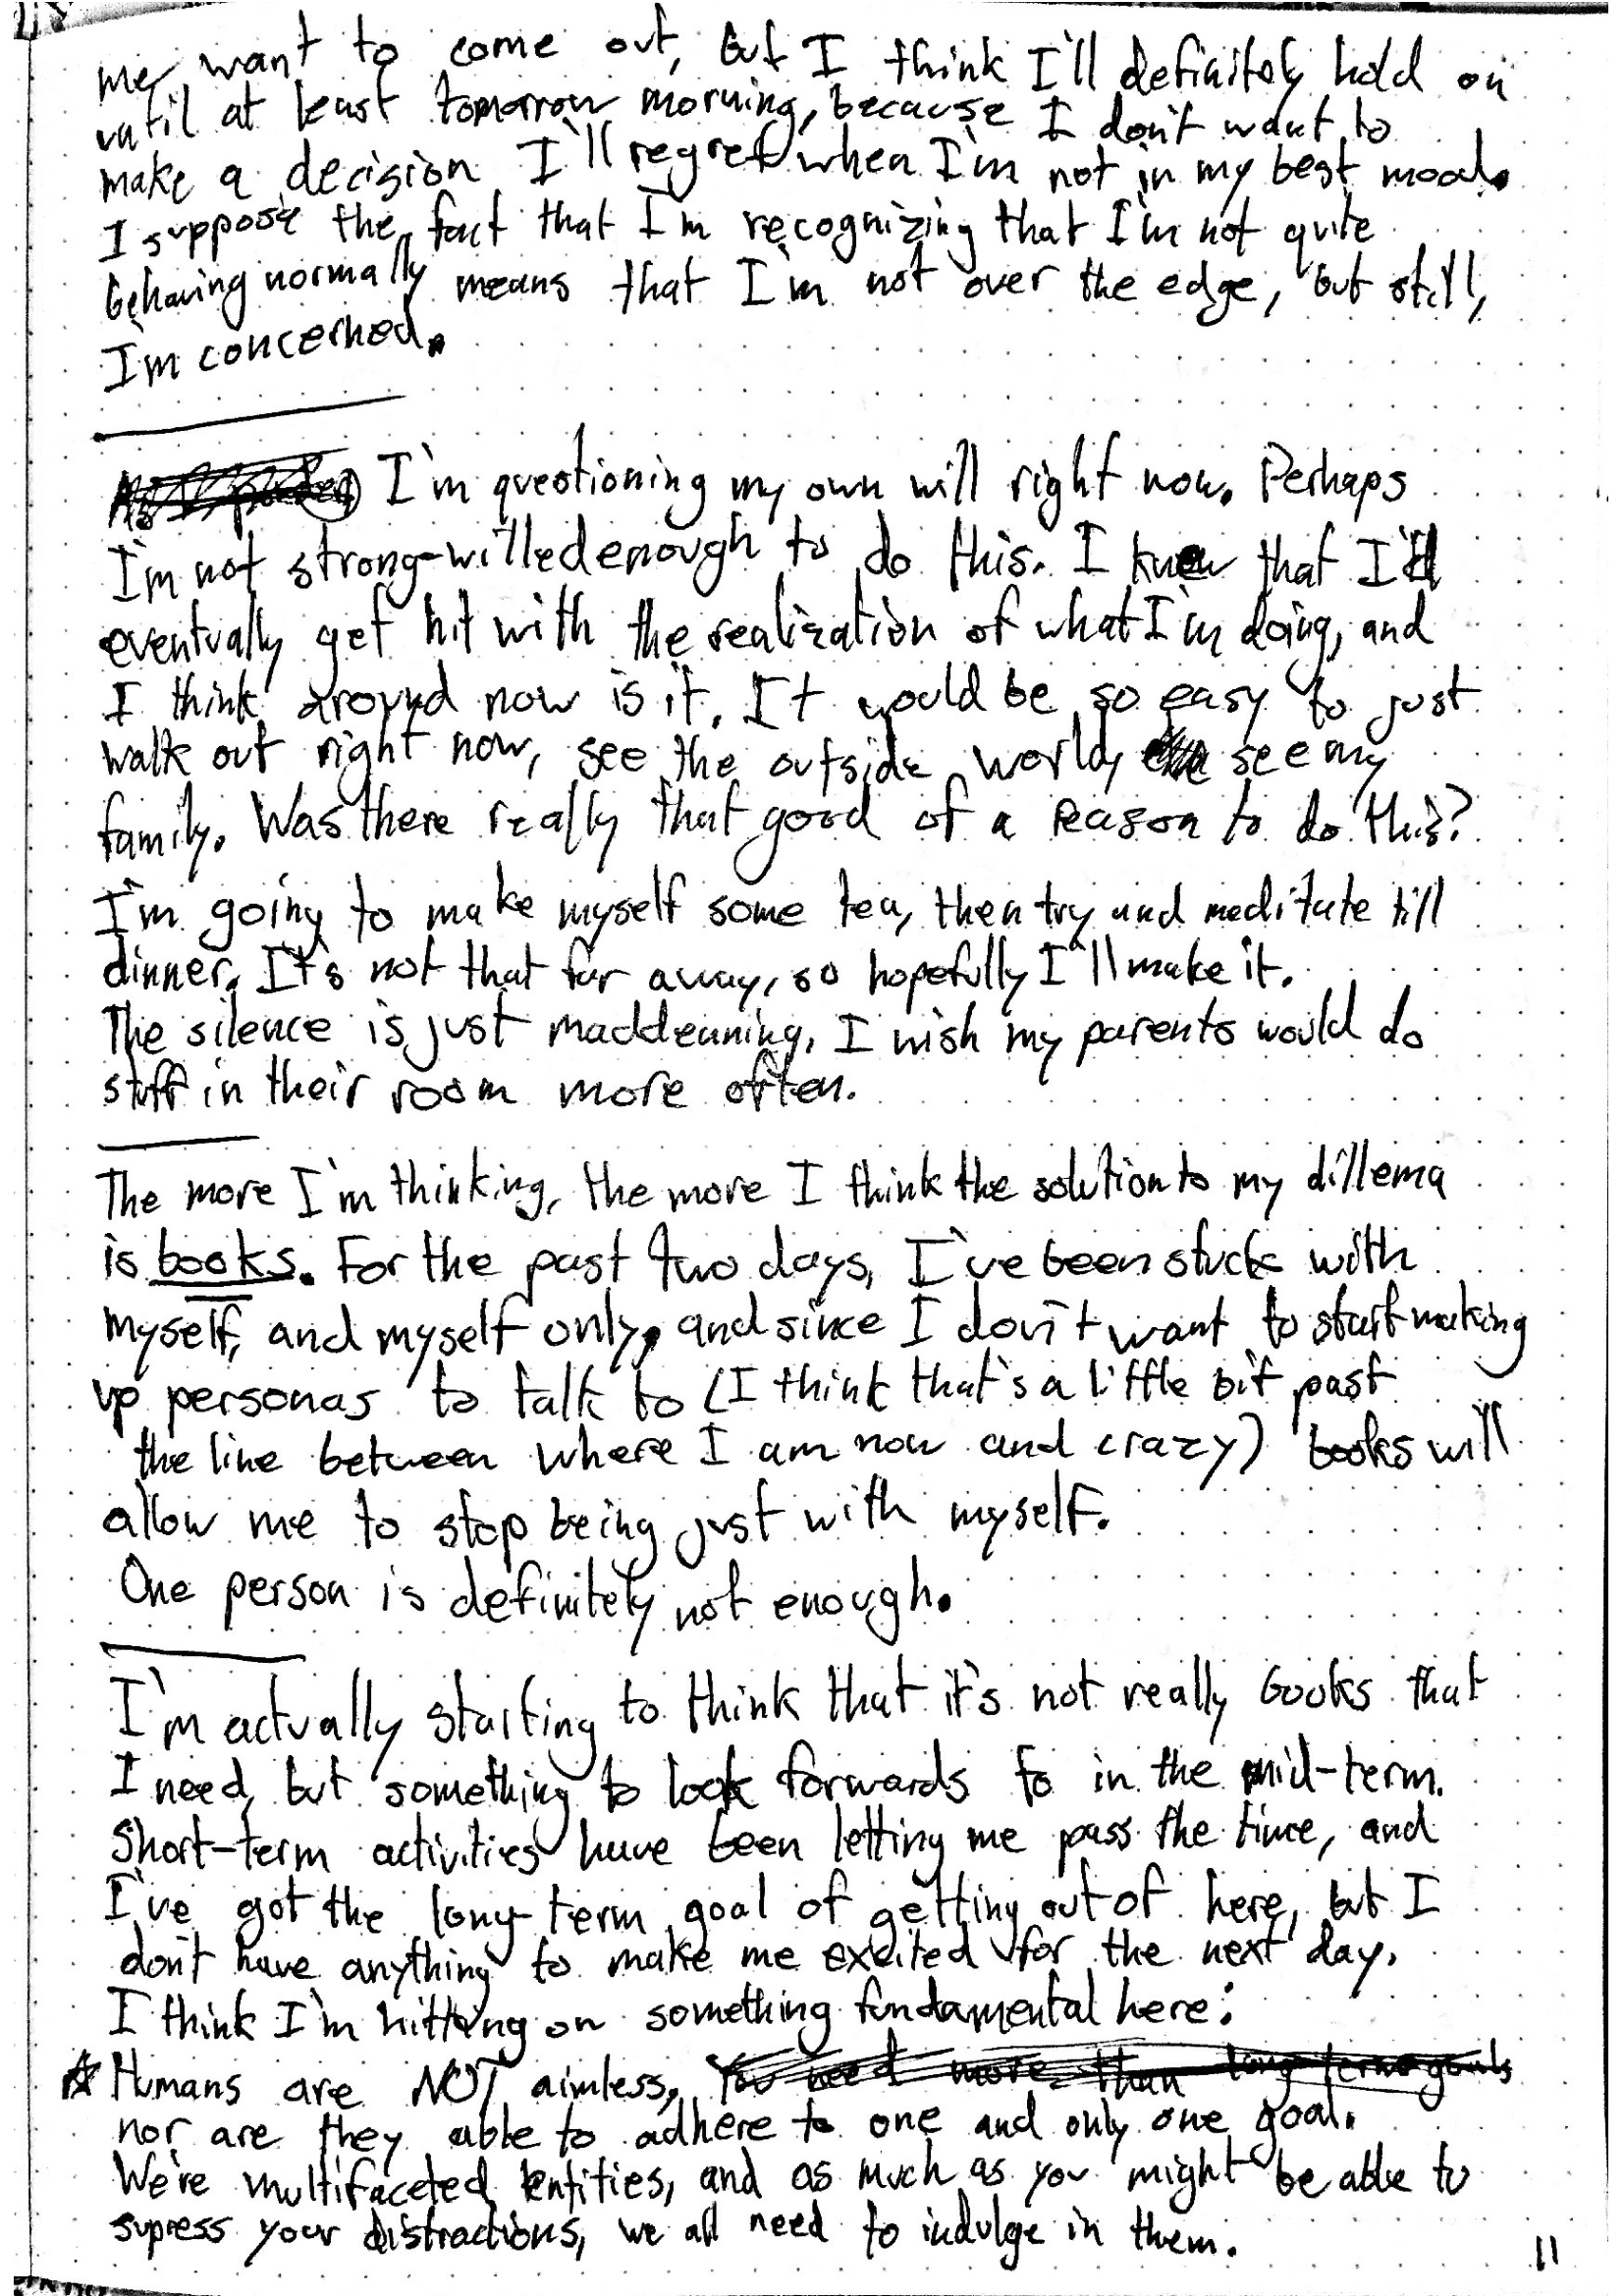 me want to come out, but I think I'll definitely hold on
until at least tomorrow morning, because I don't want to
make a decision I'll regret when I'm not in my best mood.
I suppose the fact that I'm recognizing that I'm not quite
behaving normally means that I'm not over the edge, but still,
I'm concerned.
I'm questioning my own will right now. Perhaps
I'm not strong-willed enough to do this. I knew that I'd
eventually get hit with the realization of what I'm doing, and
I think around now is it. It would be so easy to just
walk out right now, see the outside world, see my
family. Was there really that good of a reason to do this?
I'm going to make myself some tea, then try and meditate till
dinner. It's not that far away, so hopefully I'll make it.
The silence is just maddenning, I wish my parents would do
stuff in their room more often.
The more I'm thinking, the more I think the solution to my dillema
is books. For the past two days, I've been stuck with
myself, and myself only, and since I don't want to start making
up personas to talk to (I think that's a little bit past
the line between where I am now and crazy) books will
allow me to stop being just with myself.
One person is definitely not enough.
I'm actually starting to think that it's not really books that
I need, but something to look forwards to in the mid-term.
Short-term activities have been letting me pass the time, and
I've got the long-term goal of getting out of here, but I
don't have anything to make me excited for the next day.
I think I'm hitting on something fundamental here:
☆ Humans are NOT aimless, You need more than long term goals
nor are they able to adhere to one and only one goal.
We're multifaceted entities, and as much as you might be able to
supress your distractions, we all need to indulge in them.
11